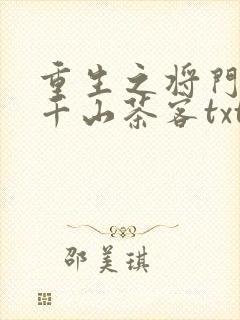 重生之将門
千山茶客txt
邵美琪